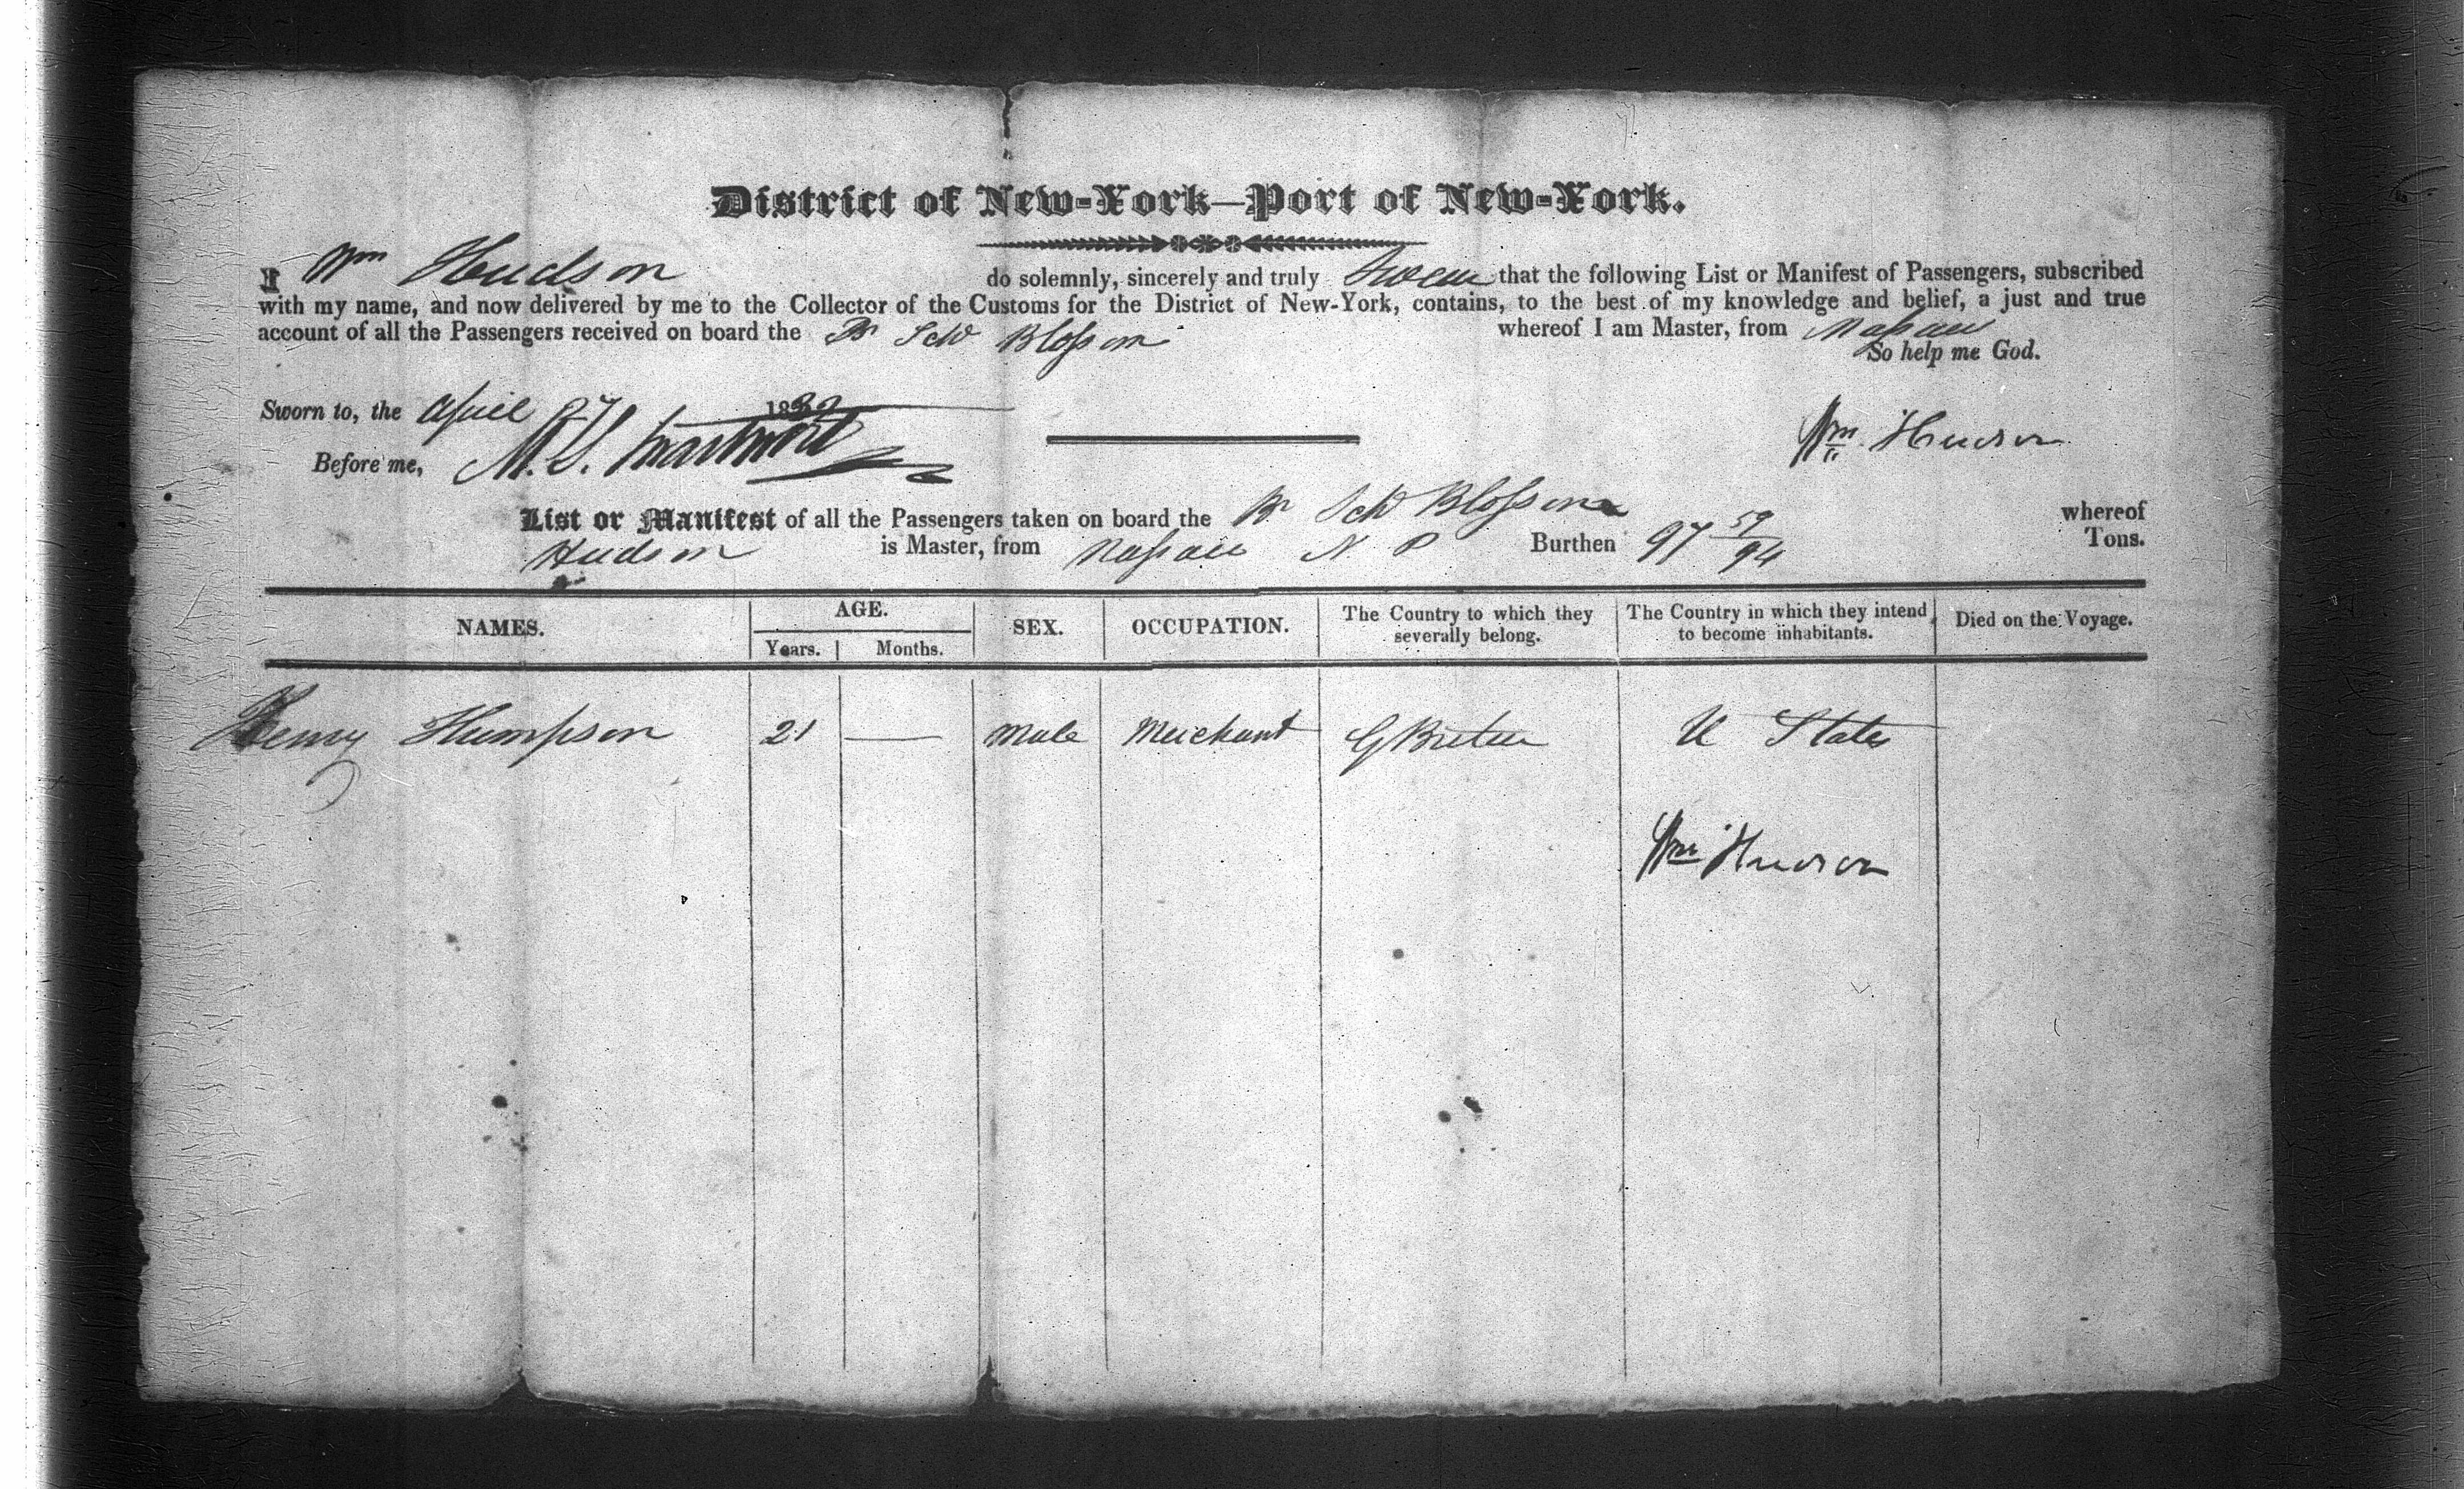 District of New-York—Port of New-York.
I Wm Hudson do solemnly, sincerely and truly Swear that the following List or Manifest of Passengers, subscribed
with my name, and now delivered by me to the Collector of the Customs for the District of New-York, contains, to the best of my knowledge and belief, a just and true
account of all the Passengers received on board the Br Schr Blossom whereof I am Master, from Nassau
So help me God.
Sworn to, the April 27 1832
Before me, Wm Hudson
List or Manifest of all the Passengers taken on board the Br Schr Blossom whereof
Hudson is Master, from Nassau N P Burthen 97 59/94 Tons.
NAMES. AGE. SEX. OCCUPATION. The Country to which they severally belong. The Country in which they intend to become inhabitants. Died on the Voyage.
Years. Months.
Henry Thompson 21 — Male Merchant G Britain U States
Wm Hudson